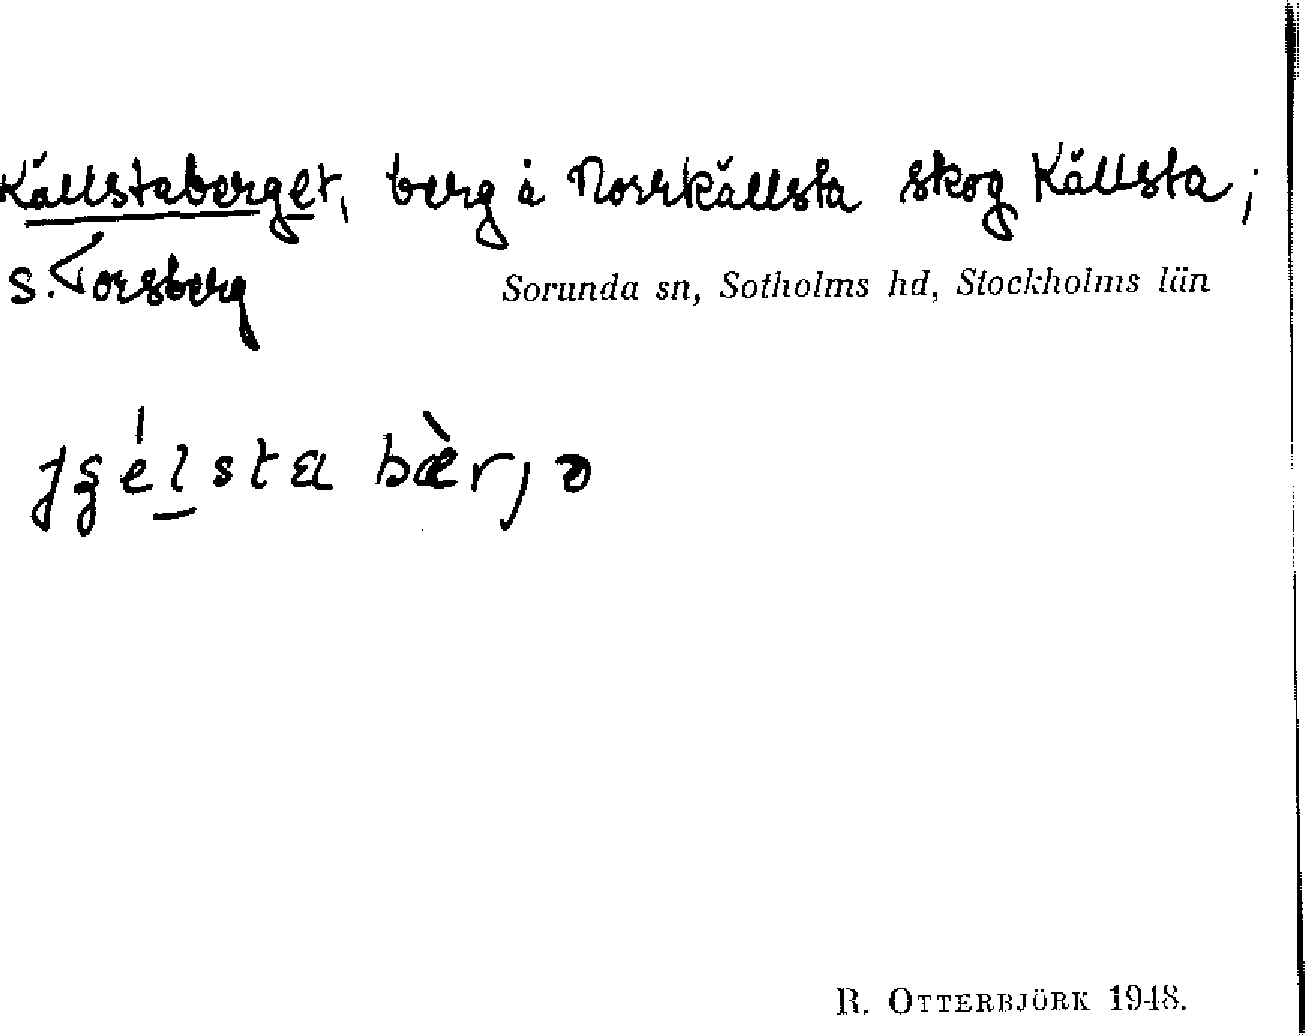 Källstaberget, berg å Norrkällsta skog Källsta;
s. Torsberg
Sorunda sn, Sotholms hd, Stockholms län
bær̀jə
R. OTTERBJÖRK 1948.